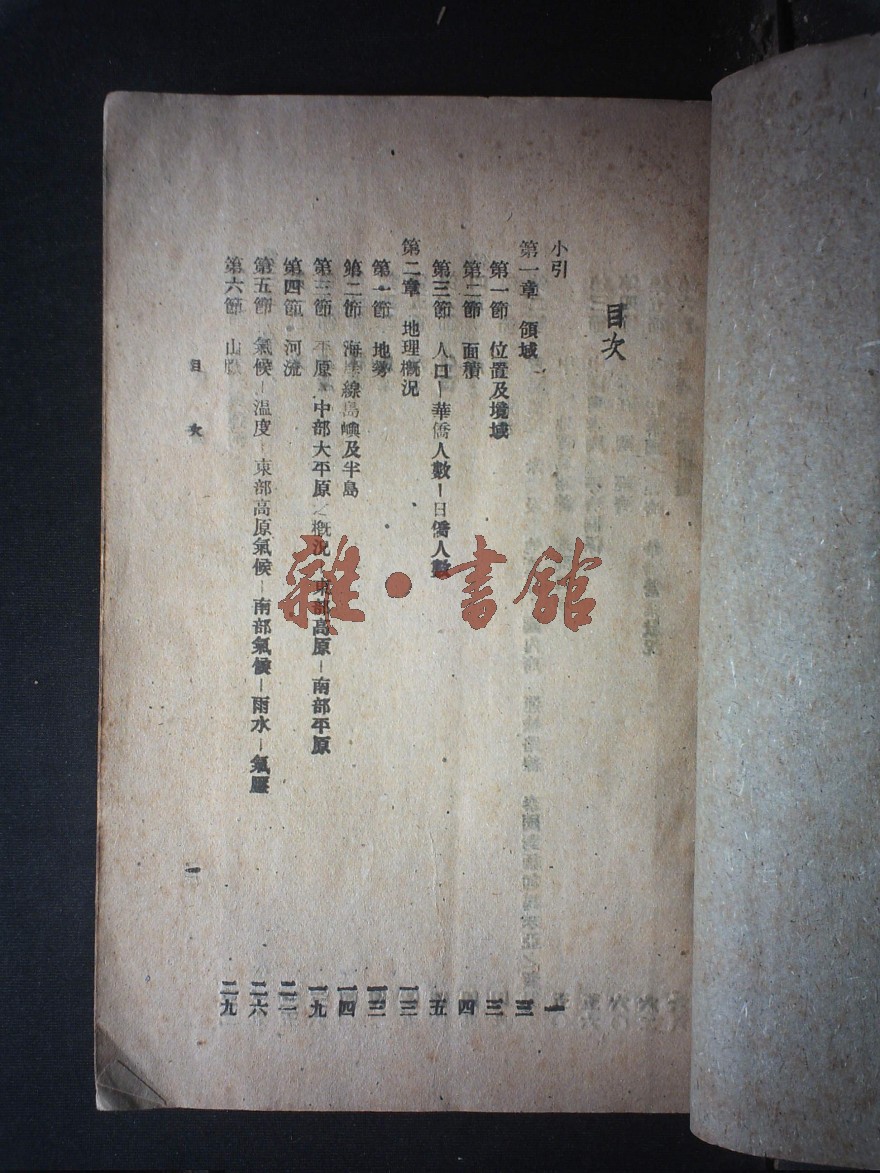 目次
小引 一
第一章 領域 三
第一節 位置及境域 三
第二節 面積 四
第三節 人口—華僑人數—日僑人數 五
第二章 地理概況 一三
第一節 地勢 一三
第二節 海岸線島嶼及半島 一四
第三節 平原 中部大平原之概況 東部高原—南部平原 一九
第四節 河流 二一
第五節 氣候—溫度—東部高原氣候—南部氣候—雨水—氣壓 二六
第六節 山脈 二九
目 次
一
雜·書館